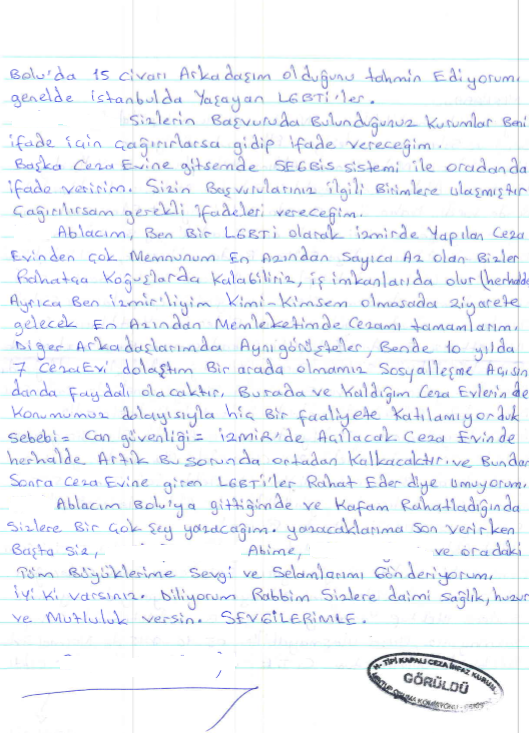 Bolu'da 15 civarı Arkadaşım olduğunu tahmin Ediyorum
genelde istanbulda Yaşayan LGBTİ'ler.
Sizlerin Başvuruda Bulunduğunuz Kurumlar Beni
ifade için çağırırlarsa gidip ifade vereceğim.
Başka Ceza Evine gitsemde SEGBİS sistemi ile oradanda
ifade veririm. Sizin Başvurularınız ilgili Birimlere ulaşmıştır
Çağırılırsam gerekli ifadeleri vereceğim.
Ablacım, Ben Bir LGBTİ olarak izmirde Yapılan Ceza
Evinden çok Memnunum En Azından Sayıca Az olan Bizler
Rahatça Koğuşlarda Kalabiliriz, iş imkanlarıda olur (herhalde
Ayrıca Ben izmir'liyim Kimi-Kimsem olmasada ziyarete
gelecek En Azından Memleketimde Cezamı tamamlarım.
Diğer Arkadaşlarımda Aynı görüşteler, Bende 10 yılda
7 CezaEvi dolaştım Bir arada olmamız Sosyalleşme Açısın
danda faydalı olacaktır. Burada ve Kaldığım Ceza Evlerinde
Konumumuz dolayısıyla hiç Bir faaliyete Katılamıyorduk
Sebebi= Can güvenliği= İZMİR'de Açılacak Ceza Evinde
herhalde Artık Bu sorunda ortadan Kalkacaktır. ve Bundan
Sonra Ceza Evine giren LGBTİ'ler Rahat Eder diye umuyorum.
Ablacım Bolu'ya gittiğimde ve Kafam Rahatladığında
Sizlere Bir çok şey yazacağım. yazacaklarıma Son verirken
Başta Siz, Abime, ve oradaki
Tüm Büyüklerime Sevgi ve Selamlarımı Gönderiyorum.
İyi ki varsınız. Diliyorum Rabbim Sizlere daimi Sağlık, huzur
ve Mutluluk versin. SEVGİLERİMLE.
TİPİ KAPALI CEZA İNFAZ KURUMU
GÖRÜLDÜ
MEKTUP OKUMA KOMİSYONU